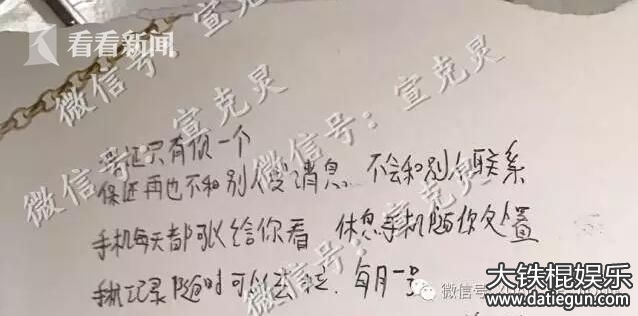 看看新闻
微信号：宣克炅
微信号：宣克炅
微信号：宣克炅
保证只有你一个
保证再也不和别人发消息 不会和别人联系
手机每天都可以给你看 休息手机随你处置
手机记录随时可以去 每月一号
微信号
大铁棍娱乐
www.datiegun.com